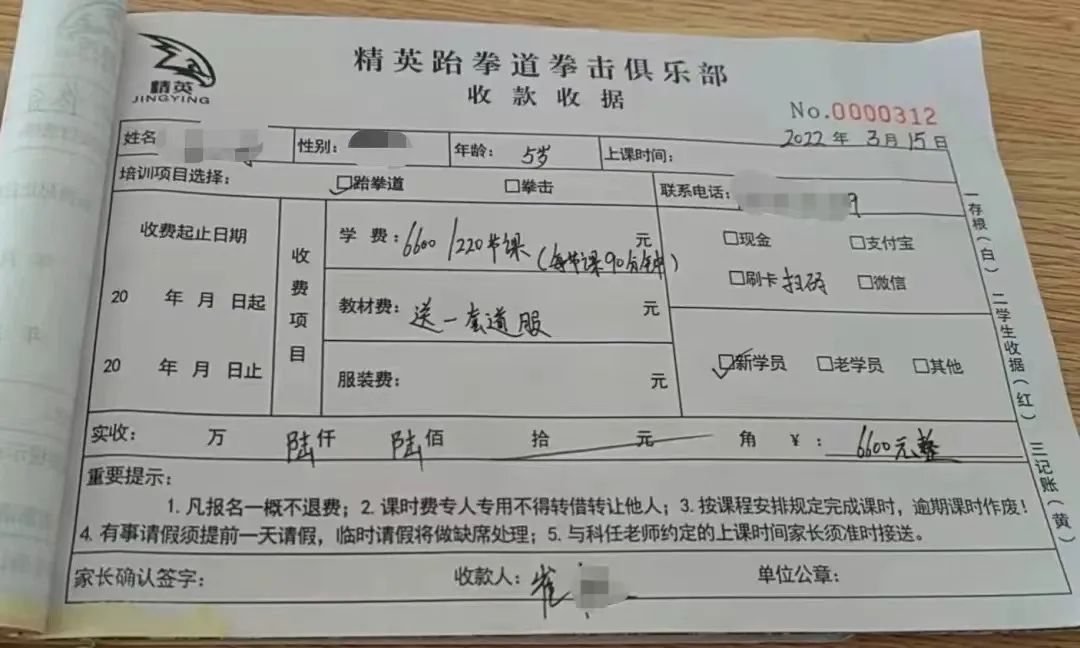 精英
JINGYING
精英跆拳道拳击俱乐部
收款收据
No.0000312
2022年 3月15日
姓名 性别： 年龄： 5岁 上课时间：
培训项目选择： □跆拳道 □拳击 联系电话： 9
收费起止日期
20 年 月 日起
20 年 月 日止
收费项目
学 费：6600/220节课（每节课90分钟） 元
教材费：送一套道服 元
服装费： 元
□现金 □支付宝
□刷卡 扫码 □微信
□新学员 □老学员 □其他
实收： 万 陆仟 陆佰 拾 元 角 ￥：6600元整
重要提示：
1. 凡报名一概不退费；2. 课时费专人专用不得转借转让他人；3. 按课程安排规定完成课时，逾期课时作废！
4. 有事请假须提前一天请假，临时请假将做缺席处理；5. 与科任老师约定的上课时间家长须准时接送。
家长确认签字： 收款人：崔 单位公章：
一存根（白） 二学生收据（红） 三记账（黄）